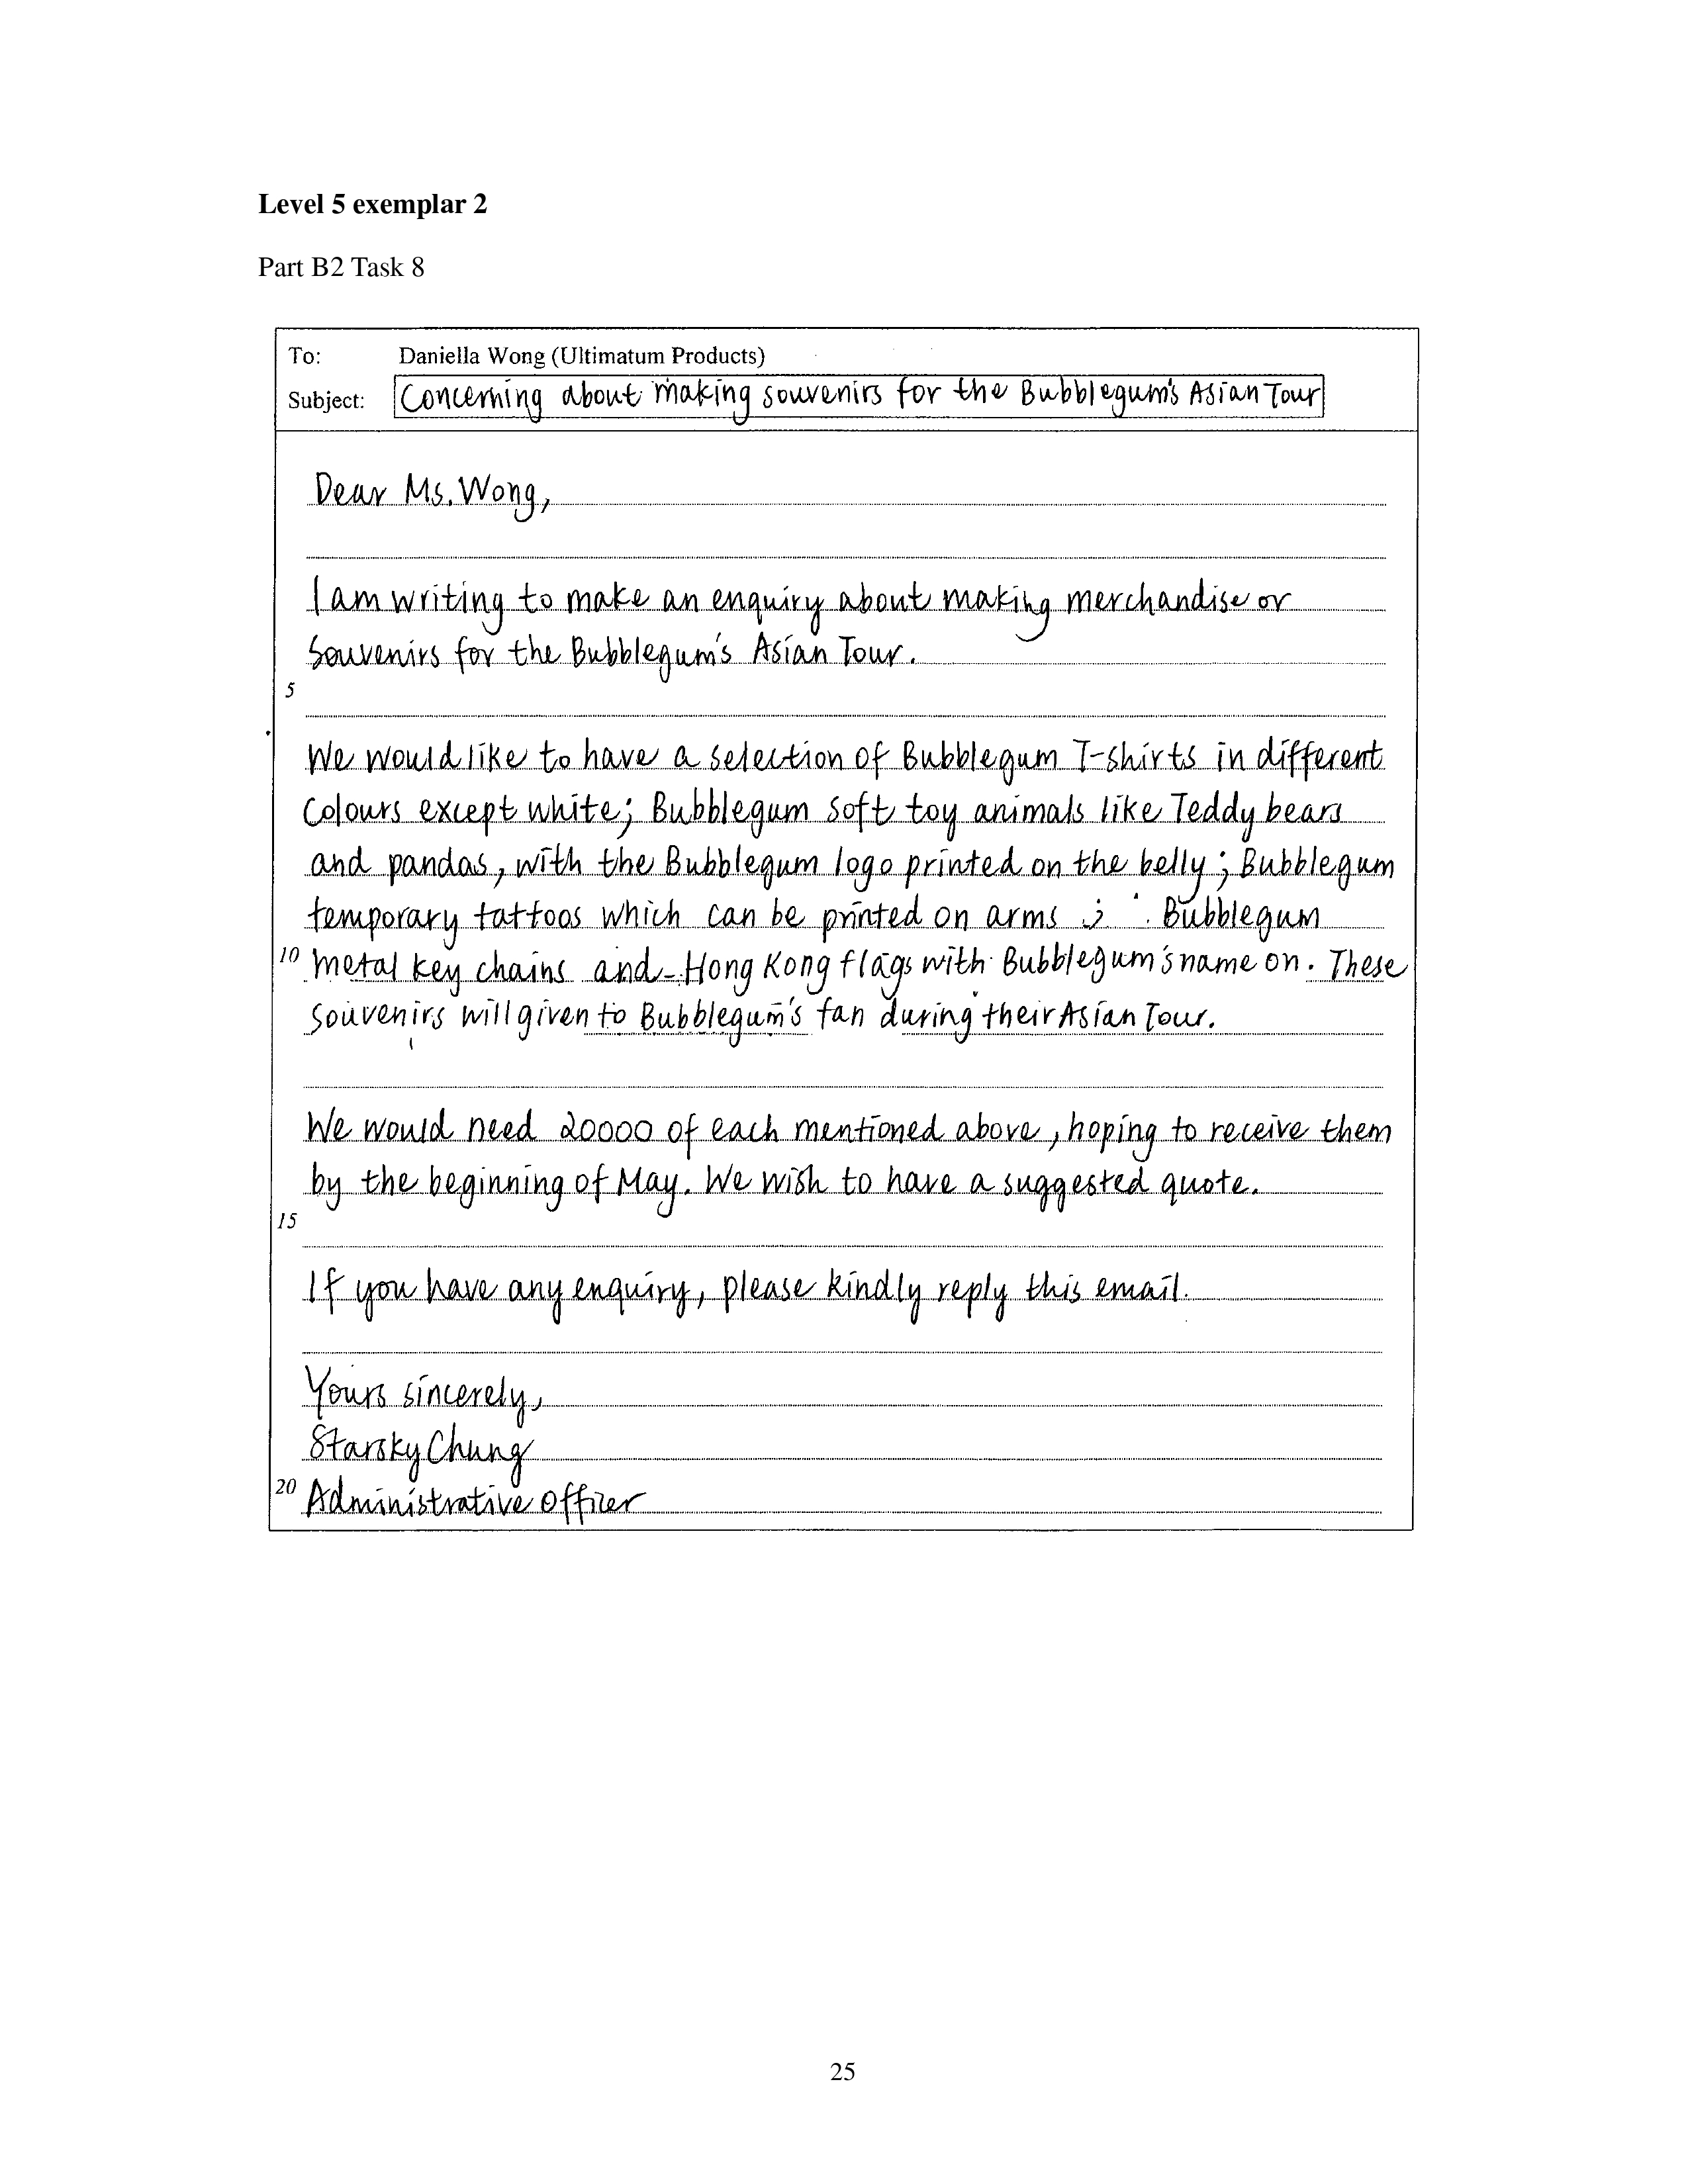 Level 5 exemplar 2
Part B2 Task 8
To: Daniella Wong (Ultimatum Products)
Subject: Concerning about making souvenirs for the Bubblegum's Asian Tour
Dear Ms. Wong,
I am writing to make an enquiry about making merchandise or
souvenirs for the Bubblegum's Asian Tour.
5
We would like to have a selection of Bubblegum T-shirts in different
colours except white; Bubblegum soft toy animals like Teddy bears
and pandas, with the Bubblegum logo printed on the belly; Bubblegum
temporary tattoos which can be printed on arms ; Bubblegum
10 metal key chains and Hong Kong flags with Bubblegum's name on. These
souvenirs will given to Bubblegum's fan during their Asian Tour.
We would need 20000 of each mentioned above, hoping to receive them
by the beginning of May. We wish to have a suggested quote.
15
If you have any enquiry, please kindly reply this email.
Yours sincerely,
Starsky Chung
20 Administrative Officer
25